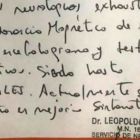 neurológico exhaust
onancia Magnética de
encefalograma y test
tivos. Siendo hasta
ales. Actualmente s
en mejoría sintomát
Dr. LEOPOLD
M.N.
SERVICIO DE NE